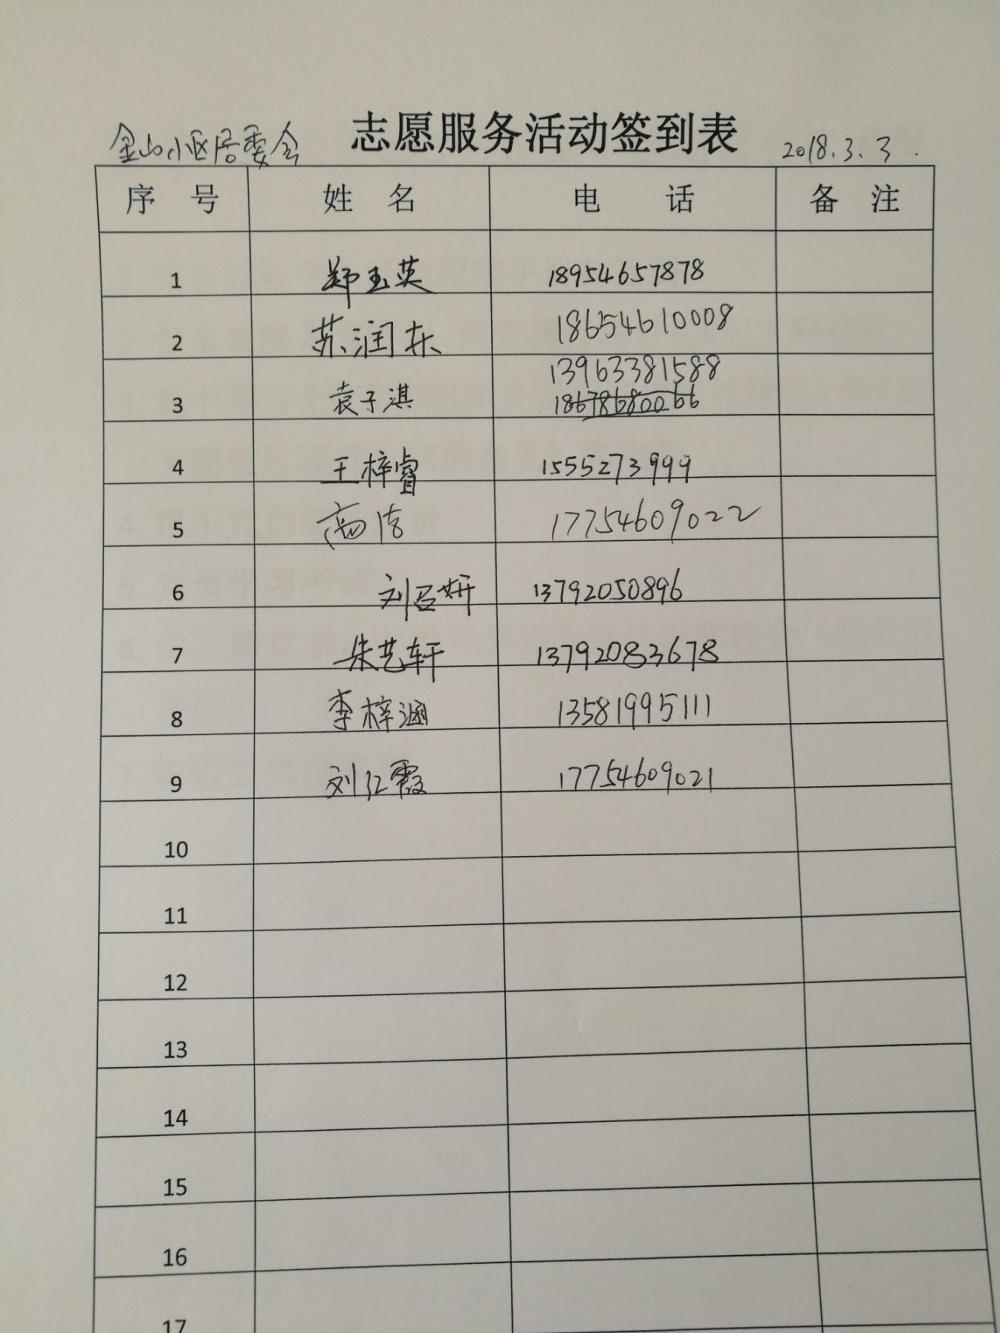 金山小区居委会 志愿服务活动签到表 2018.3.3.
序 号 姓 名 电 话 备 注
1 郑玉英 18954657878
2 苏润东 18654610008
13963381588
3 袁子淇 18678680066
4 王梓睿 1555273999
5 高洁 17754609022
6 刘召妍 13792050896
7 朱艺轩 13792083678
8 李梓涵 13581995111
9 刘红霞 17754609021
10
11
12
13
14
15
16
17